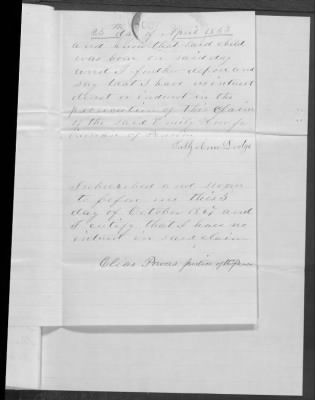 25th day of April 1863
and know that said child
was born on said day
and I further depose and
say that I have no interest
direct or indirect in the
prosecution of this claim
of the said Emily for
increase of Pension
Sally Ann Dodge
Subscribed and sworn
to before me this 3
day of October 1867 and
I certify that I have no
interest in said claim
Elias Powers justice of the peace